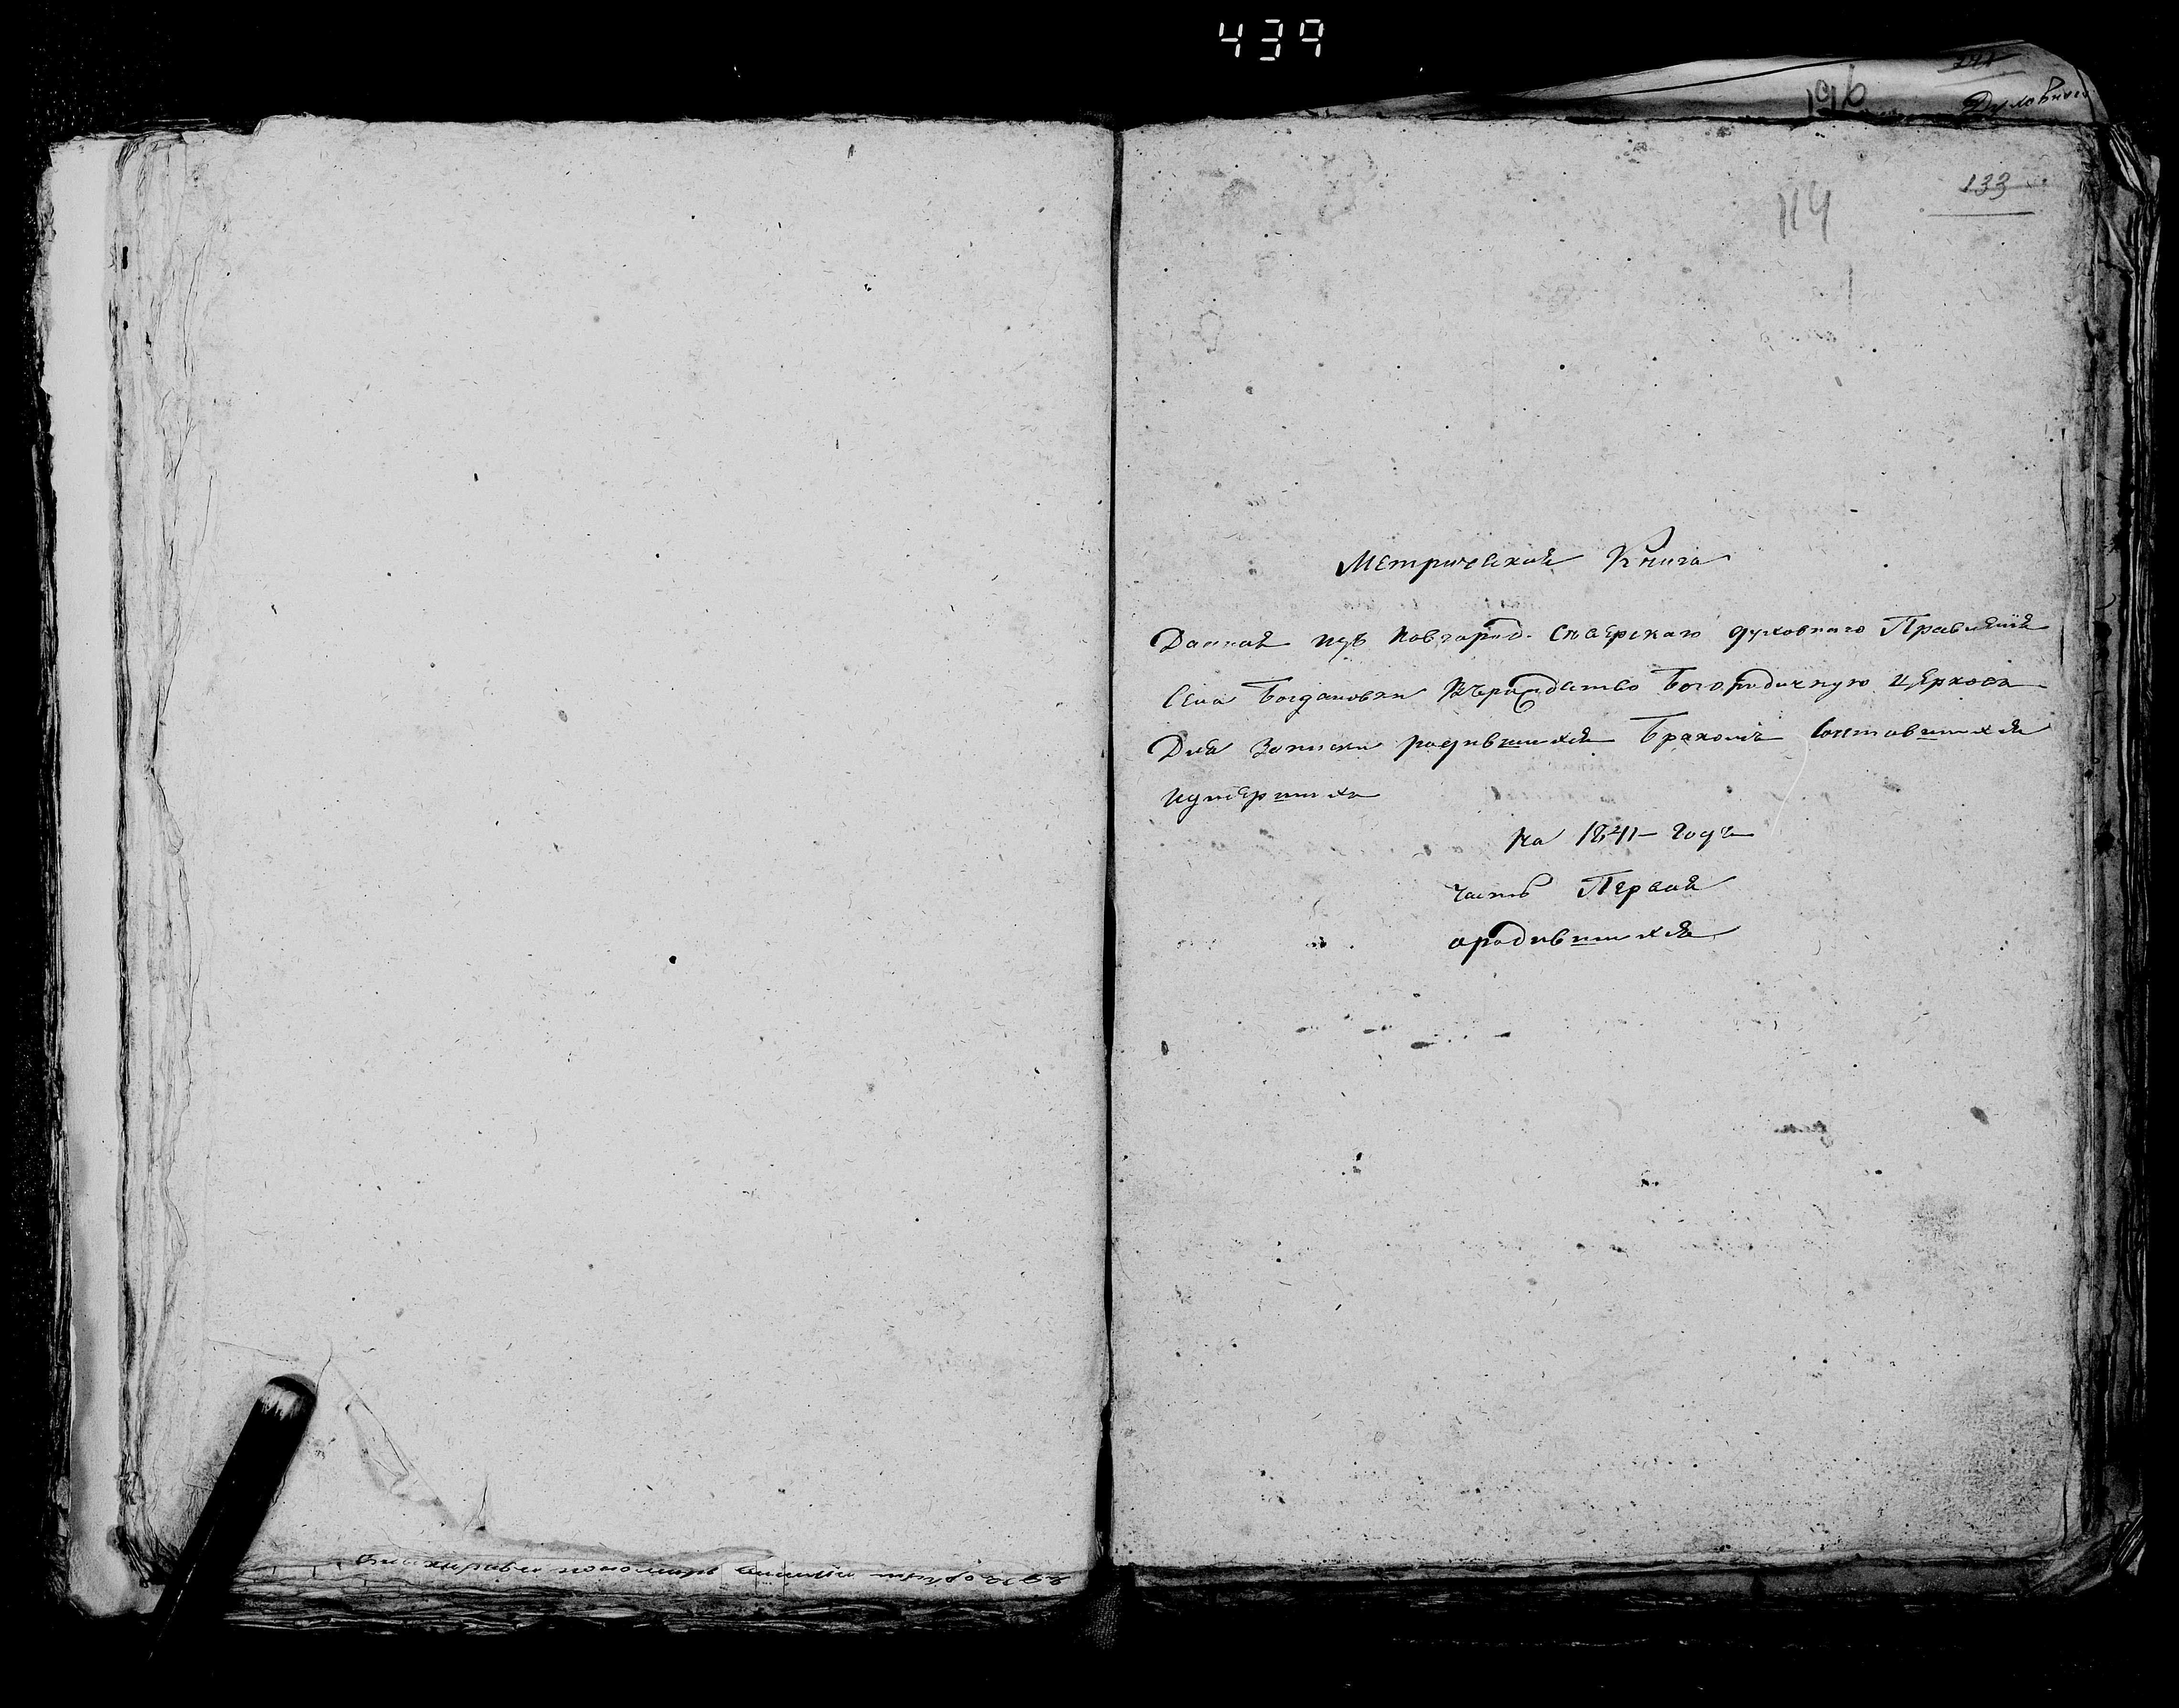 439
196
133
114
Метрическая Книга
Данная изъ Новгород. Сѣверскаго духовнаго Правленія
Села Богдановки Върождество Богородичную церковь
Для Записки родившихся Бракомъ Сочетавшихся
иумершихъ
На 1841 Годъ
Часть Первая
ородившихся